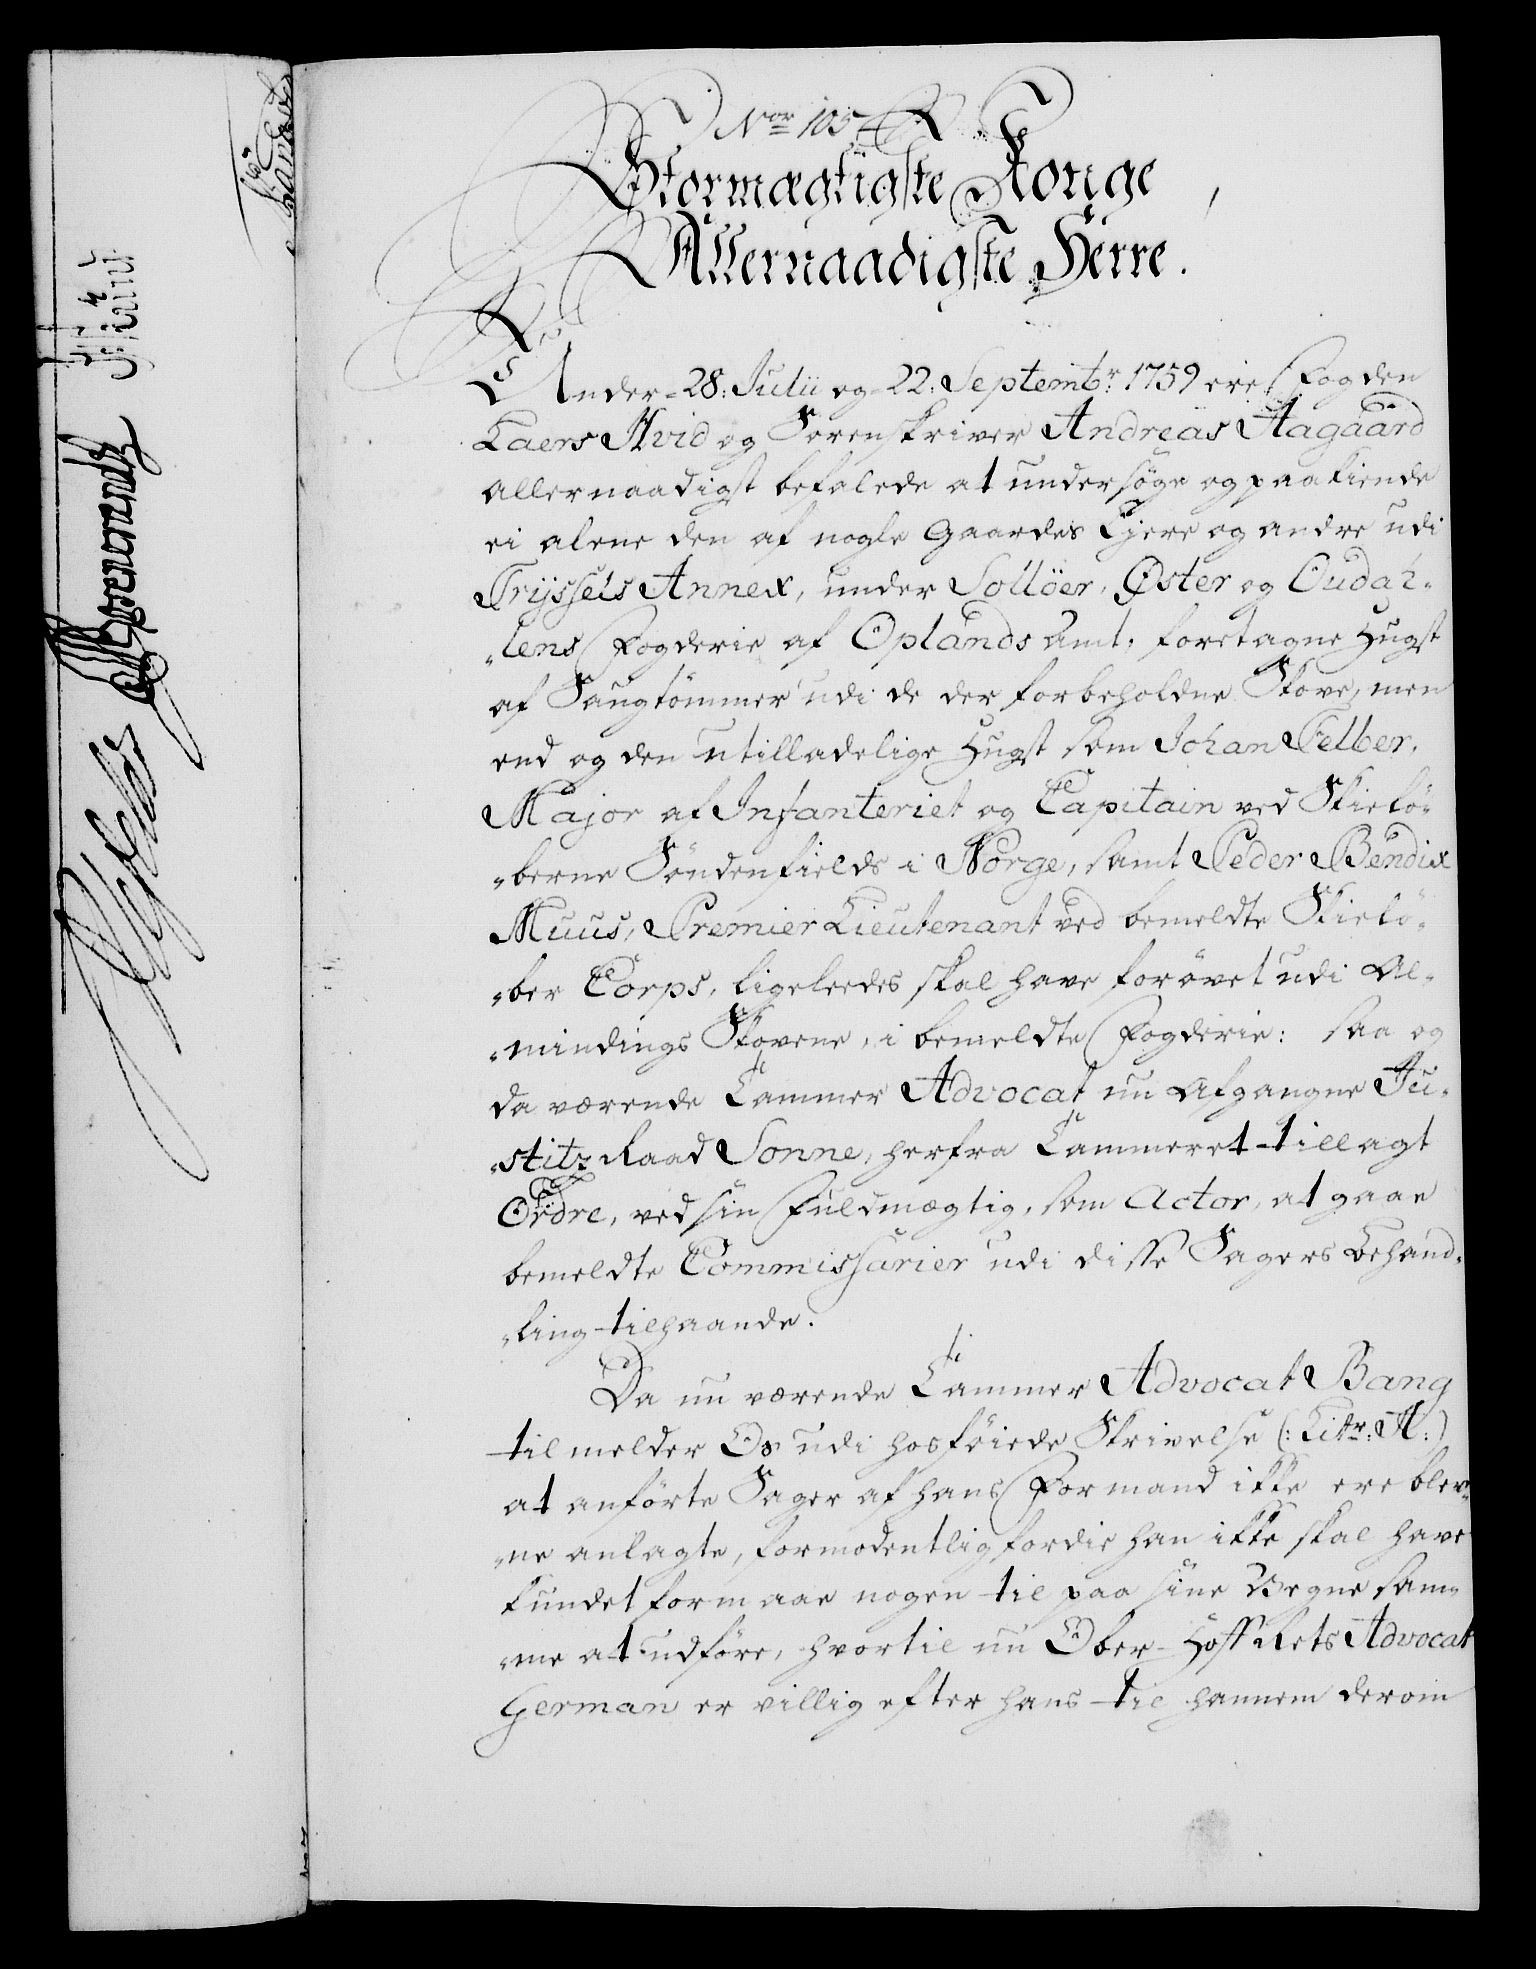 Nor 105
Stormægtigste Konge,
Allernaadigste Herre.
Under 28: Julii og 22: Septembr: 1759 ere Fogden
Laers Hvid og Sorenskriver Andreas Aagaard
allernaadigst befalede at undersöge og paakiende
ei alene den af nogle Gaardes Ejere og andre udi
Trÿssels Annex, under Sollöer, Øster og Oudah-
„lens Fogderie af Oplands Amt, foretagne Hugst
af Saugtömmer udi de der forbeholdne Skove, men
end og den utilladelige Hugst som Johan Pelber,
Major af Infanteriet og Capitain ved Skielö-
„berne Söndenfields i Norge, samt Peder Bendix
Muus, Premier Lieutenant ved bemeldte Skielö-
„ber Corps, ligeleedes skal have forövet udi Al-
„mindings Skovene, i bemeldte Fogderie: saa og
da værende Cammer Advocat nu afgangne Ju-
„stitz Raad Sonne, herfra Cammeret tillagt
Ordre, ved sin Fuldmægtig, som Actor, at gaae
bemeldte Commissarier udi disse Sagers Behand-
„ling tilhaande.
Da nu værende Cammer Advocat Bang
tilmelder Os udi hosföiede Skrivelse (: Litr: A :)
at anförte Sager af hans Formand ikke ere blev-
„ne anlagte, formodentlig fordie han ikke skal have
kundet formaae nogen til paa sine Vegne sam-
„me at udföre, hvortil nu Ober-Hoff Rets Advocat
German er villig efter hans til hannem derom